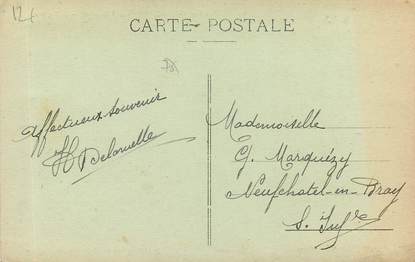 12€
CARTE POSTALE
Affectueux souvenir
H Delarvelle
Mademoiselle
G. Marquézy
Neufchatel-en-Bray
S. Infre